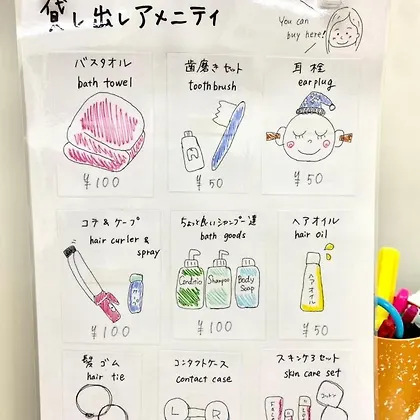 貸し出しアメニティ
You can
buy here!
バスタオル
bath towel
¥100
歯磨きセット
toothbrush
¥50
耳栓
earplug
¥50
コテ&ケープ
hair curler &
spray
¥100
ちょっと良いシャンプー達
bath goods
Conditio
Shampoo
Body
Soap
¥100
ヘアオイル
hair oil
ヘアオイル
¥50
髪ゴム
hair tie
コンタクトケース
contact case
L
R
スキンケア3セット
skin care set
コットン